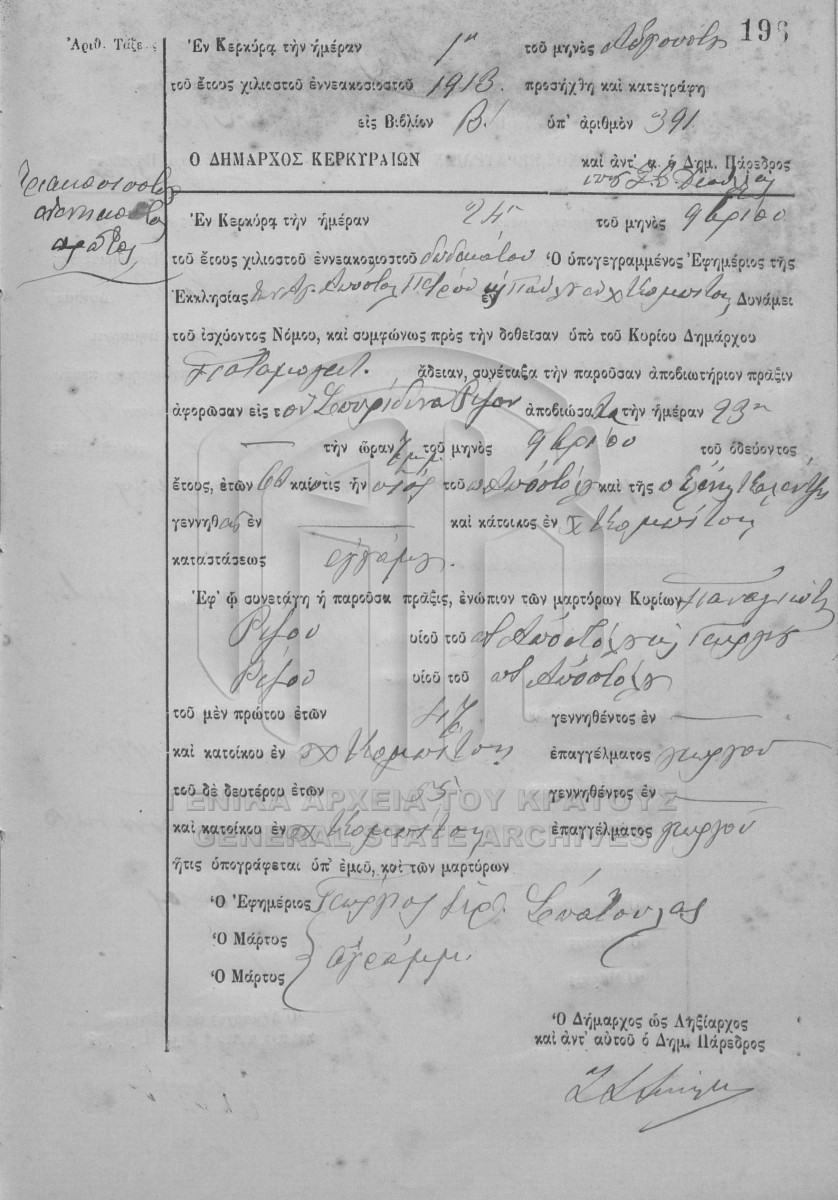 196
Ἀριθ. Τάξεως Ἐν Κερκύρᾳ τὴν ἡμέραν 1η τοῦ μηνὸς Αὐγούστου
τοῦ ἔτους χιλιοστοῦ ἐννεακοσιοστοῦ 1913. προσήχθη καὶ κατεγράφη
εἰς Βιβλίον Β! ὑπ' ἀριθμὸν 391
Ὁ ΔΗΜΑΡΧΟΣ ΚΕΡΚΥΡΑΙΩΝ καὶ ἀντ' α. ὁ Δημ. Πάρεδρος
Τριακοσιοστὸς
πρῶτος
Ἐν Κερκύρᾳ τὴν ἡμέραν 24η τοῦ μηνὸς 9βρίου
τοῦ ἔτους χιλιοστοῦ ἐννεακοσιοστοῦ δωδεκάτου Ὁ ὑπογεγραμμένος Ἐφημέριος τῆς
Ἐκκλησίας Ἁγ. Ἀποστόλ. Πέτρου Παύλου Δυνάμει
τοῦ ἰσχύοντος Νόμου, καὶ συμφώνως πρὸς τὴν δοθεῖσαν ὑπὸ τοῦ Κυρίου Δημάρχου
Ποταμογειτ. ἄδειαν, συνέταξα τὴν παροῦσαν ἀποβιωτήριον πρᾶξιν
ἀφορῶσαν εἰς τὸν Σπυρίδωνα Ρίζον ἀποβιώσαντα τὴν ἡμέραν 23η
— τὴν ὥραν τοῦ μηνὸς 9βρίου τοῦ ὁδεύοντος
ἔτους, ἐτῶν καὶ ὅστις ἦν υἱὸς τοῦ π. Ἀποστόλη καὶ τῆς Ἑλένης
γεννηθεὶς ἐν — καὶ κάτοικος ἐν χ
καταστάσεως ἐγγάμου.
Ἐφ' ᾧ συνετάγη ἡ παροῦσα πρᾶξις, ἐνώπιον τῶν μαρτύρων Κυρίων Παναγιώτη
Ρίζου υἱοῦ τοῦ ποτ Ἀποστόλη καὶ Γεωργίου
Ρίζου υἱοῦ τοῦ ποτ Ἀποστόλη
τοῦ μὲν πρώτου ἐτῶν γεννηθέντος ἐν —
καὶ κατοίκου ἐν χ ἐπαγγέλματος γεωργοῦ
τοῦ δὲ δευτέρου ἐτῶν 55 γεννηθέντος ἐν —
καὶ κατοίκου ἐν χ ἐπαγγέλματος γεωργοῦ
ἥτις ὑπογράφεται ὑπ' ἐμοῦ, καὶ τῶν μαρτύρων
Ὁ Ἐφημέριος Γεώργιος ἱερ. Σπάτουλας
Ὁ Μάρτυς
ἀγράμμ.
Ὁ Μάρτυς
Ὁ Δήμαρχος ὡς Ληξίαρχος
καὶ ἀντ' αὐτοῦ ὁ Δημ. Πάρεδρος
ΓΕΝΙΚΑ ΑΡΧΕΙΑ ΤΟΥ ΚΡΑΤΟΥΣ
GENERAL STATE ARCHIVES